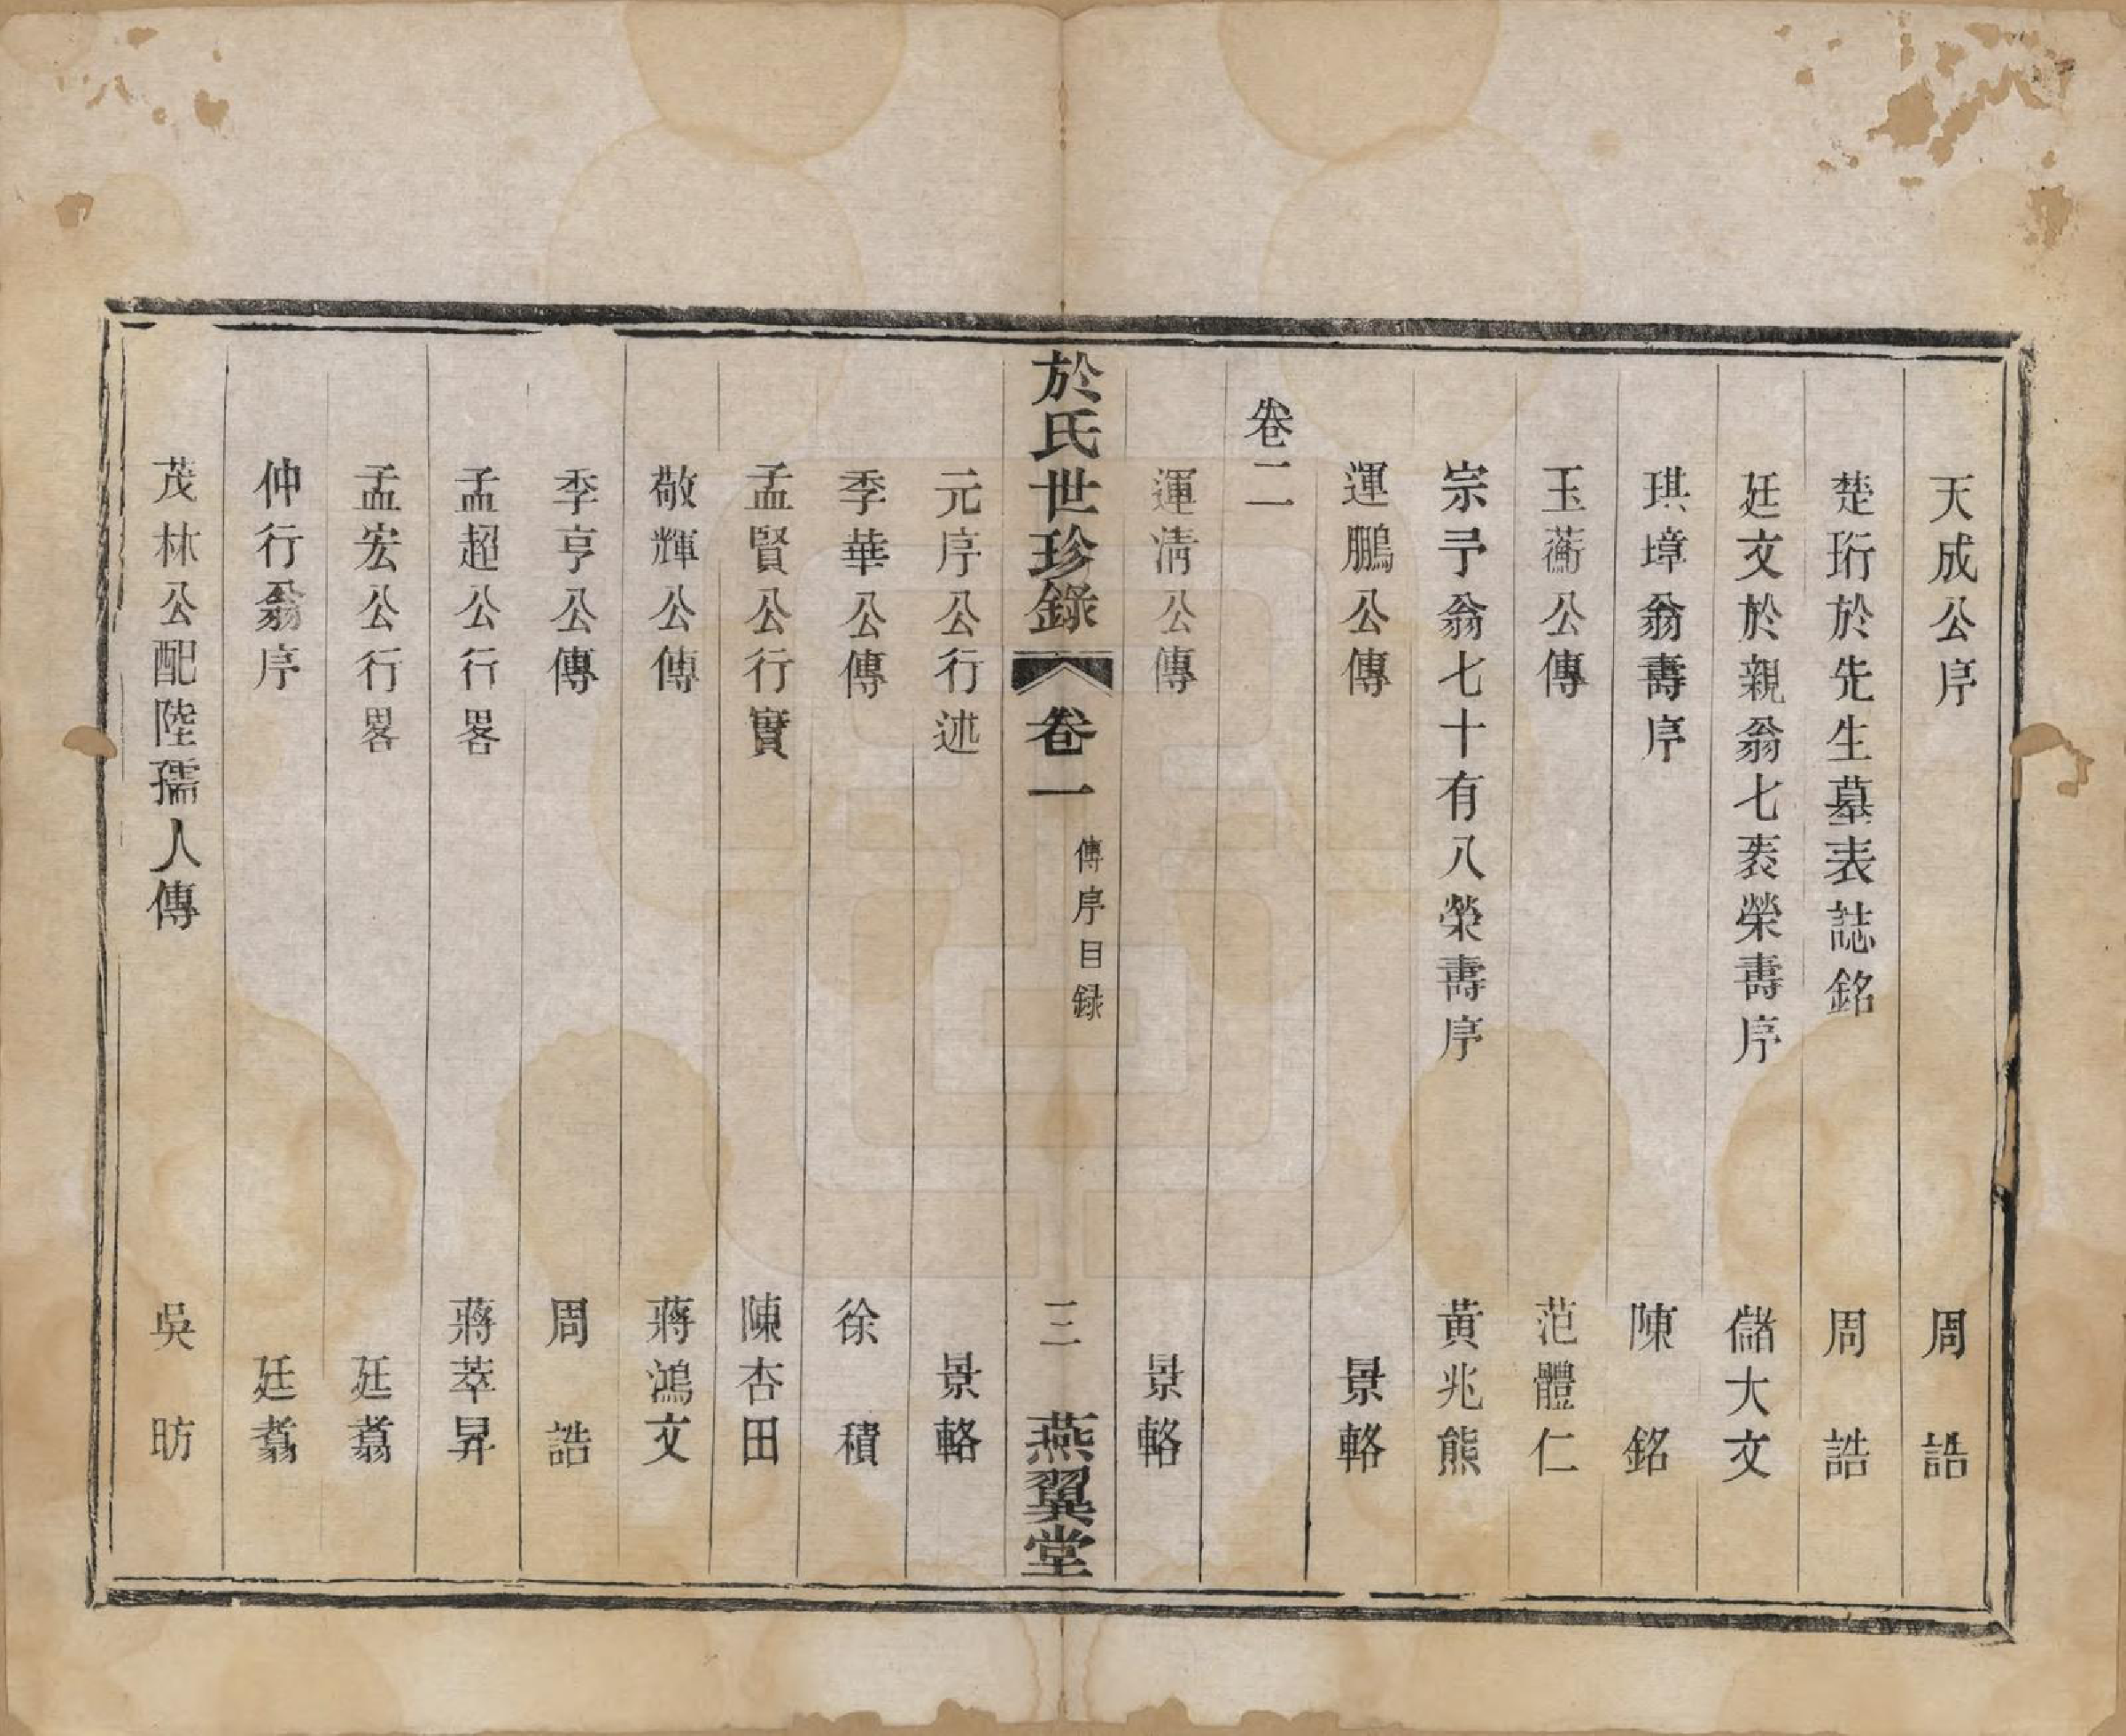 天成公序 周誥
楚珩於先生墓表誌銘 周誥
廷文於親翁七袠榮壽序 儲大文
琪璋翁壽序 陳銘
玉蘅公傳 范體仁
宗予翁七十有八榮壽序 黃兆熊
運鵬公傳 景輅
卷二
運清公傳 景輅
於氏世珍錄 卷一 傳序目録 三 燕翼堂
元序公行述 景輅
季華公傳 徐積
孟賢公行實 陳杏田
敬輝公傳 蔣鴻文
季亨公傳 周誥
孟超公行畧 蔣萃昇
孟宏公行畧 廷翥
仲行翁序 廷翥
茂林公配陸孺人傳 吳昉